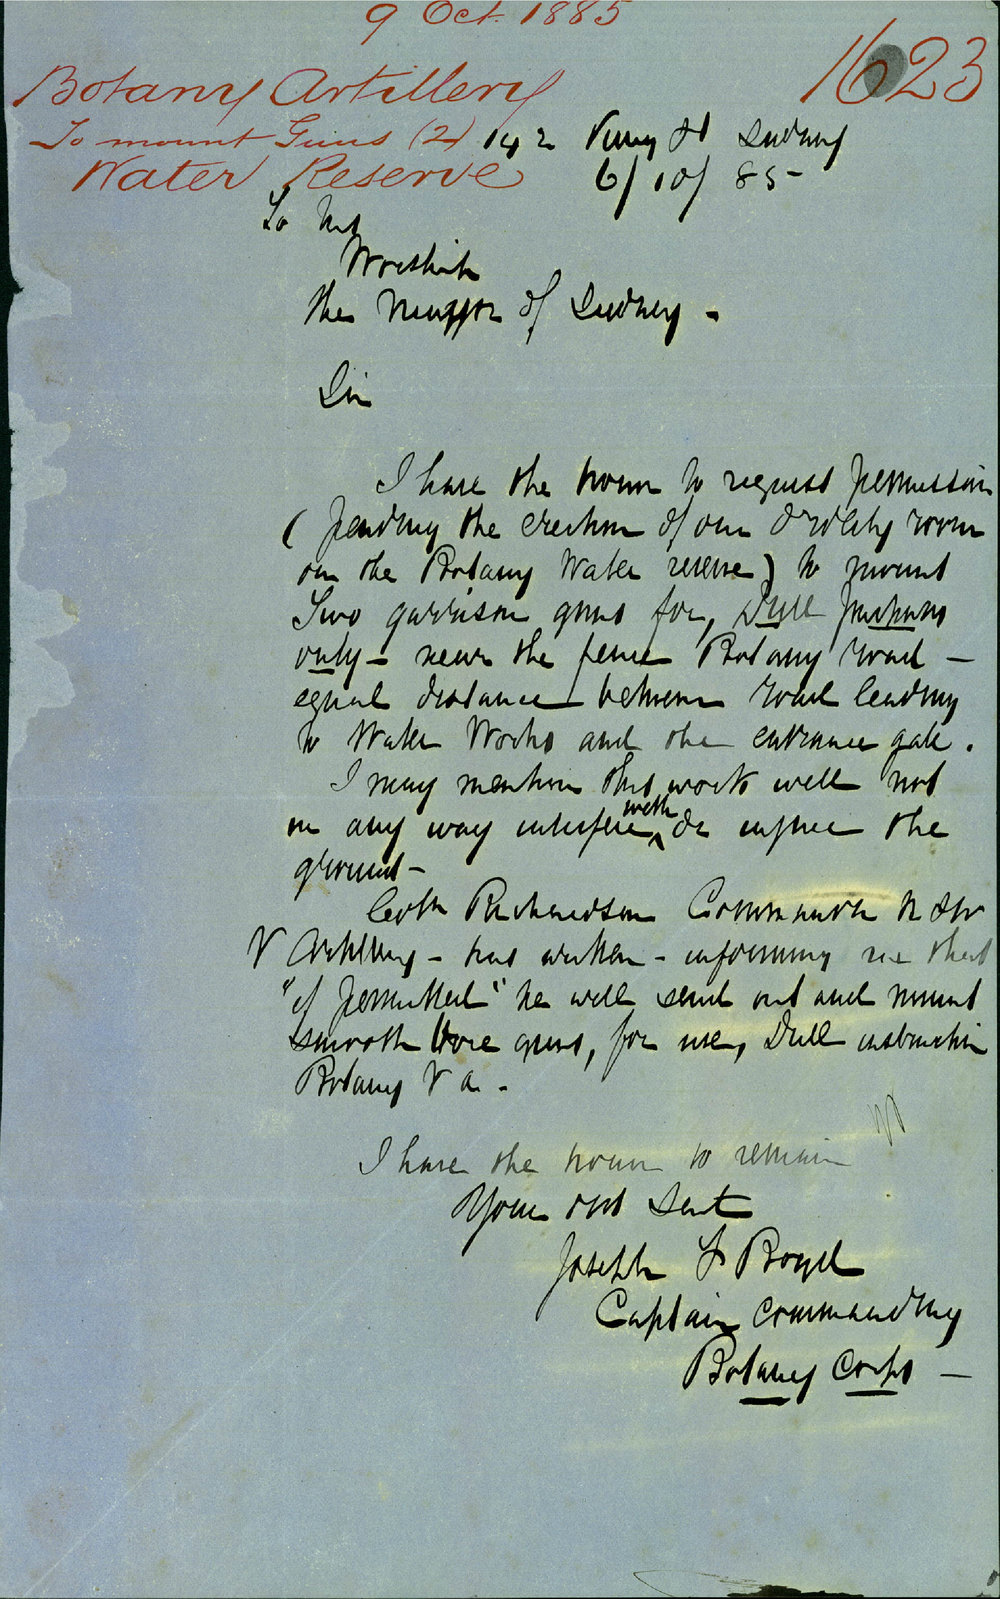 9 Oct. 1885
1623
Botany Artillery
To mount Guns (2)
Water Reserve
142 Pitt St Sydney
6/10/85-
To His
Worship
the Mayor of Sydney -
Sir
I have the honor to request permission
(pending the erection of our Orderly room
on the Botany Water reserve) to mount
Two garrison guns for, Drill purposes
only - near the fence Botany road -
equal distance between road leading
to Water Works and the entrance gate.
I may mention this work will not
in any way interfere with or injure the
ground -
Coln Richardson Commandr N S W
V Artillery - has written - informing me that
"if permitted" he will send out and mount
smooth bore guns, for use, Drill instruction
Botany V A -
I have the honor to remain
Your obt Servt
Joseph F Boyd
Captain Commanding
Botany Corps -